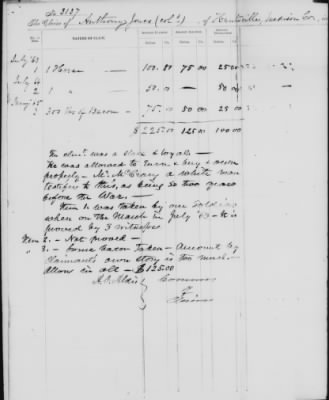 No. 3137
The Claim of Anthony Jones (col'd) of Huntsville, Madison Co.
NATURE OF CLAIM.
July '63
1 1 Horse — 100.00 75 00 25.00
July '64
2 1 " — 50.00 — 50 00
3 300 lbs of Bacon — 75.00 50 00 25 00
$225.00 125 00 100.00
The claimt was a slave & loyal —
He was allowed to earn & buy & own
property — Mr. McCrary a white man
testifies to this, as being so two years
before the War. —
Item 1. was taken by our Soldiers
when on the March in July '63 — It is
proved by 3 witnesses
Item 2. — Not proved —
" 3. — Some bacon taken — Amount by
Claimant's own story is too much.—
Allow in all — $125.00